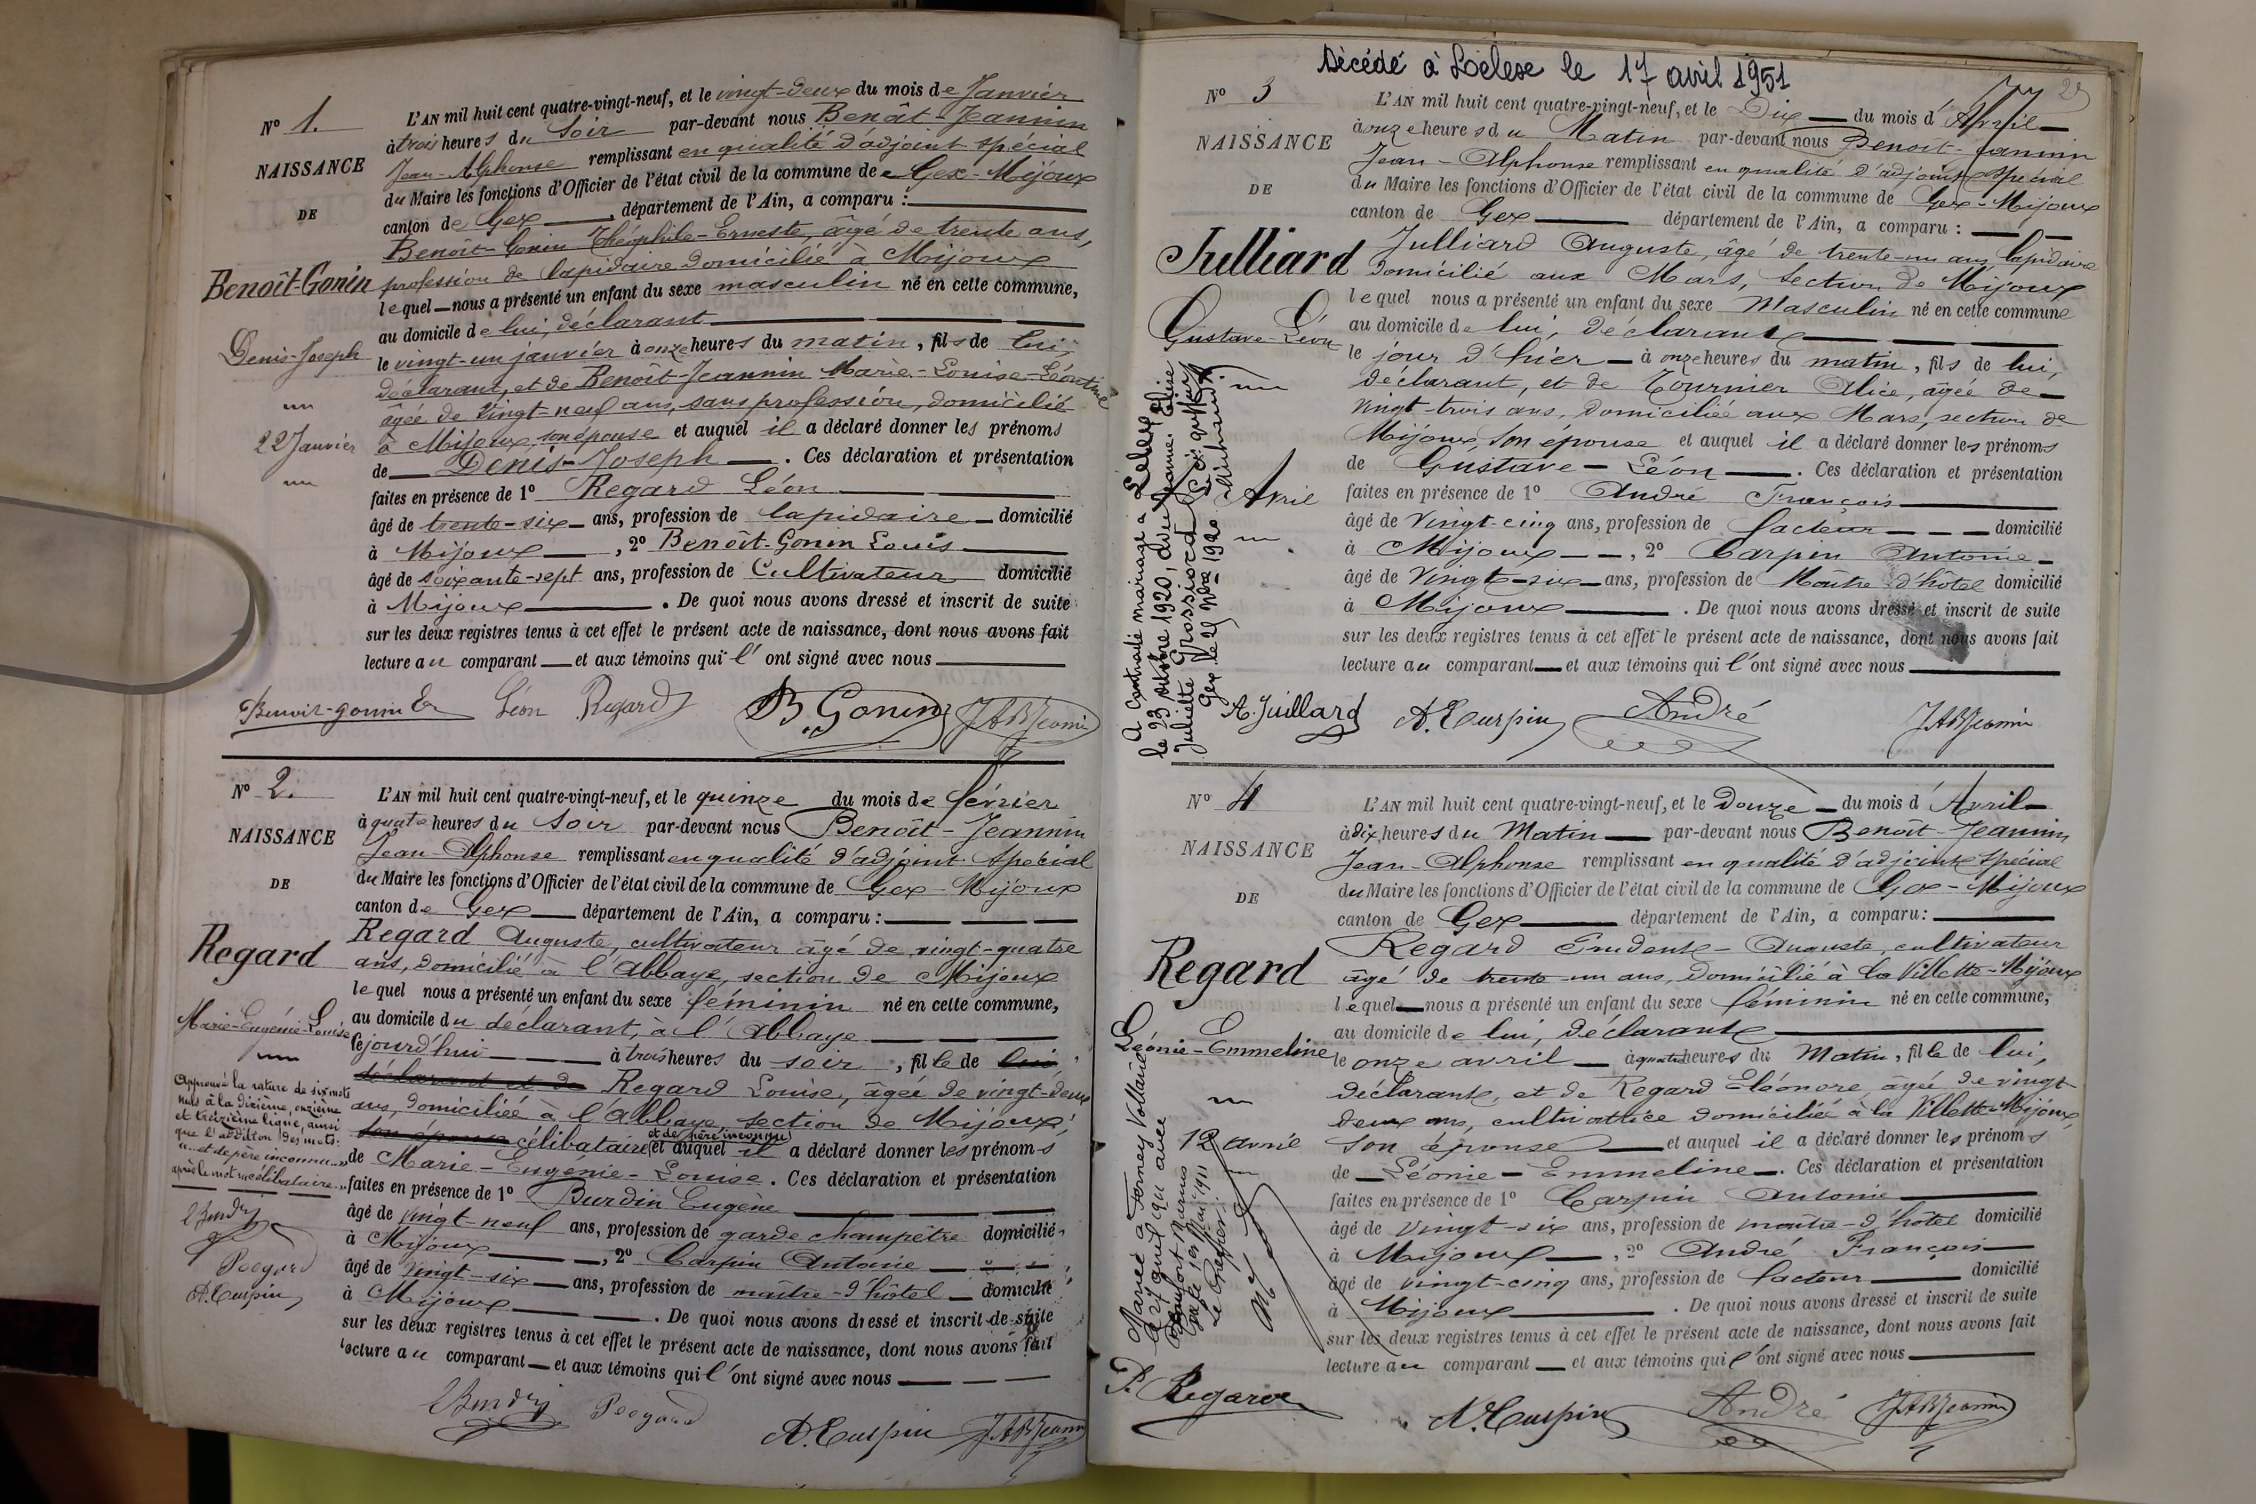 N° 1.
NAISSANCE
DE
Benoît-Gonin
Denis-Joseph
22 Janvier
L'AN mil huit cent quatre-vingt-neuf, et le vingt-deux du mois de Janvier
à trois heures du Soir par-devant nous Benoît-Jeannin
Jean-Alphonse remplissant en qualité d'adjoint spécial
du Maire les fonctions d'Officier de l'état civil de la commune de Gex-Mijoux
canton de Gex, département de l'Ain, a comparu :
Benoît-Gonin Théophile-Erneste, âgé de trente ans,
profession de lapidaire domicilié à Mijoux
lequel nous a présenté un enfant du sexe masculin né en cette commune,
au domicile de lui, déclarant
le vingt-un janvier à onze heures du matin, fils de lui,
déclarant, et de Benoît-Jeannin Marie-Louise-Léontine
âgée de vingt-neuf ans, sans profession, domicilié
à Mijoux, son épouse et auquel il a déclaré donner les prénoms
de Denis-Joseph. Ces déclaration et présentation
faites en présence de 1° Regard Léon
âgé de trente-six ans, profession de lapidaire domicilié
à Mijoux, 2° Benoît-Gonin Louis
âgé de soixante-sept ans, profession de Cultivateur domicilié
à Mijoux. De quoi nous avons dressé et inscrit de suite
sur les deux registres tenus à cet effet le présent acte de naissance, dont nous avons fait
lecture au comparant et aux témoins qui l'ont signé avec nous
Benoit-gonin Léon Regard B. Gonin JABJeannin
N° 2.
NAISSANCE
DE
Regard
Marie-Eugénie-Louise
Approuvé la rature de six mots
nuls à la dixième, onzième
et treizième ligne, ainsi
que l'addition des mots:
"et de père inconnu"
après le mot "célibataire"
Regard
A. Carpin
L'AN mil huit cent quatre-vingt-neuf, et le quinze du mois de février
à quatre heures du Soir par-devant nous Benoît-Jeannin
Jean-Alphonse remplissant en qualité d'adjoint Spécial
du Maire les fonctions d'Officier de l'état civil de la commune de Gex-Mijoux
canton de Gex département de l'Ain, a comparu :
Regard Auguste, cultivateur âgé de vingt-quatre
ans, domicilié à l'Abbaye, section de Mijoux
lequel nous a présenté un enfant du sexe féminin né en cette commune,
au domicile du déclarant, à l'Abbaye
le jourd'hui à trois heures du soir, fille de lui,
déclarant et de Regard Louise, âgée de vingt-deux
ans, domiciliée à l'Abbaye, section de Mijoux,
et de père inconnu
son épouse célibataire et auquel il a déclaré donner les prénoms
de Marie-Eugénie-Louise. Ces déclaration et présentation
faites en présence de 1° Burdin Eugène
âgé de vingt-neuf ans, profession de garde champêtre domicilié
à Mijoux, 2° Carpin Antoine
âgé de vingt-six ans, profession de maître-d'hôtel domicilié
à Mijoux. De quoi nous avons dressé et inscrit de suite
sur les deux registres tenus à cet effet le présent acte de naissance, dont nous avons fait
lecture au comparant et aux témoins qui l'ont signé avec nous
EBurdin Regard A. Carpin JABJeannin
Décédé à Lélex le 17 avril 1951
N° 3
NAISSANCE
DE
Julliard
Gustave-Léon
Avril
A contracté mariage à Lélex
le 23 octobre 1920, avec Jeanne Elise
Juliette Grossiord
Gex le 29 Nbre 1920
L'AN mil huit cent quatre-vingt-neuf, et le Dix du mois d'Avril
à onze heures du Matin par-devant nous Benoit-Jeannin
Jean-Alphonse remplissant en qualité d'adjoint spécial
du Maire les fonctions d'Officier de l'état civil de la commune de Gex-Mijoux
canton de Gex département de l'Ain, a comparu :
Julliard Auguste, âgé de trente-un ans, lapidaire
domicilié aux Mars, section de Mijoux
lequel nous a présenté un enfant du sexe Masculin né en cette commune
au domicile de lui, déclarant
le jour d'hier à onze heures du matin, fils de lui,
déclarant, et de Tournier Alice, âgée de
vingt-trois ans, domiciliée aux Mars, section de
Mijoux, Son épouse et auquel il a déclaré donner les prénoms
de Gustave-Léon. Ces déclaration et présentation
faites en présence de 1° André François
âgé de Vingt-cinq ans, profession de facteur domicilié
à Mijoux, 2° Carpin Antoine
âgé de Vingt-six ans, profession de Maître d'hôtel domicilié
à Mijoux. De quoi nous avons dressé et inscrit de suite
sur les deux registres tenus à cet effet le présent acte de naissance, dont nous avons fait
lecture au comparant et aux témoins qui l'ont signé avec nous
A. Juillard A. Carpin André JABJeannin
N° 4
NAISSANCE
DE
Regard
Léonie-Emmeline
12 avril
Mariée à Ferney Voltaire
le 29 avril 1911 avec
L'AN mil huit cent quatre-vingt-neuf, et le Douze du mois d'Avril
à dix heures du Matin par-devant nous Benoît-Jeannin
Jean-Alphonse remplissant en qualité d'adjoint spécial
du Maire les fonctions d'Officier de l'état civil de la commune de Gex-Mijoux
canton de Gex département de l'Ain, a comparu :
Regard Prudent-Auguste, cultivateur
âgé de trente-un ans, domicilié à la Villette-Mijoux
lequel nous a présenté un enfant du sexe féminin né en cette commune,
au domicile de lui, déclarant
le onze avril à quatre heures du Matin, fille de lui,
déclarant, et de Regard Eléonore, âgée de vingt-
deux ans, cultivatrice domiciliée à la Villette-Mijoux,
Son épouse et auquel il a déclaré donner les prénoms
de Léonie-Emmeline. Ces déclaration et présentation
faites en présence de 1° Carpin Antoine
âgé de vingt-six ans, profession de maître-d'hôtel domicilié
à Mijoux, 2° André François
âgé de vingt-cinq ans, profession de facteur domicilié
à Mijoux. De quoi nous avons dressé et inscrit de suite
sur les deux registres tenus à cet effet le présent acte de naissance, dont nous avons fait
lecture au comparant et aux témoins qui l'ont signé avec nous
P. Regard A. Carpin André JABJeannin